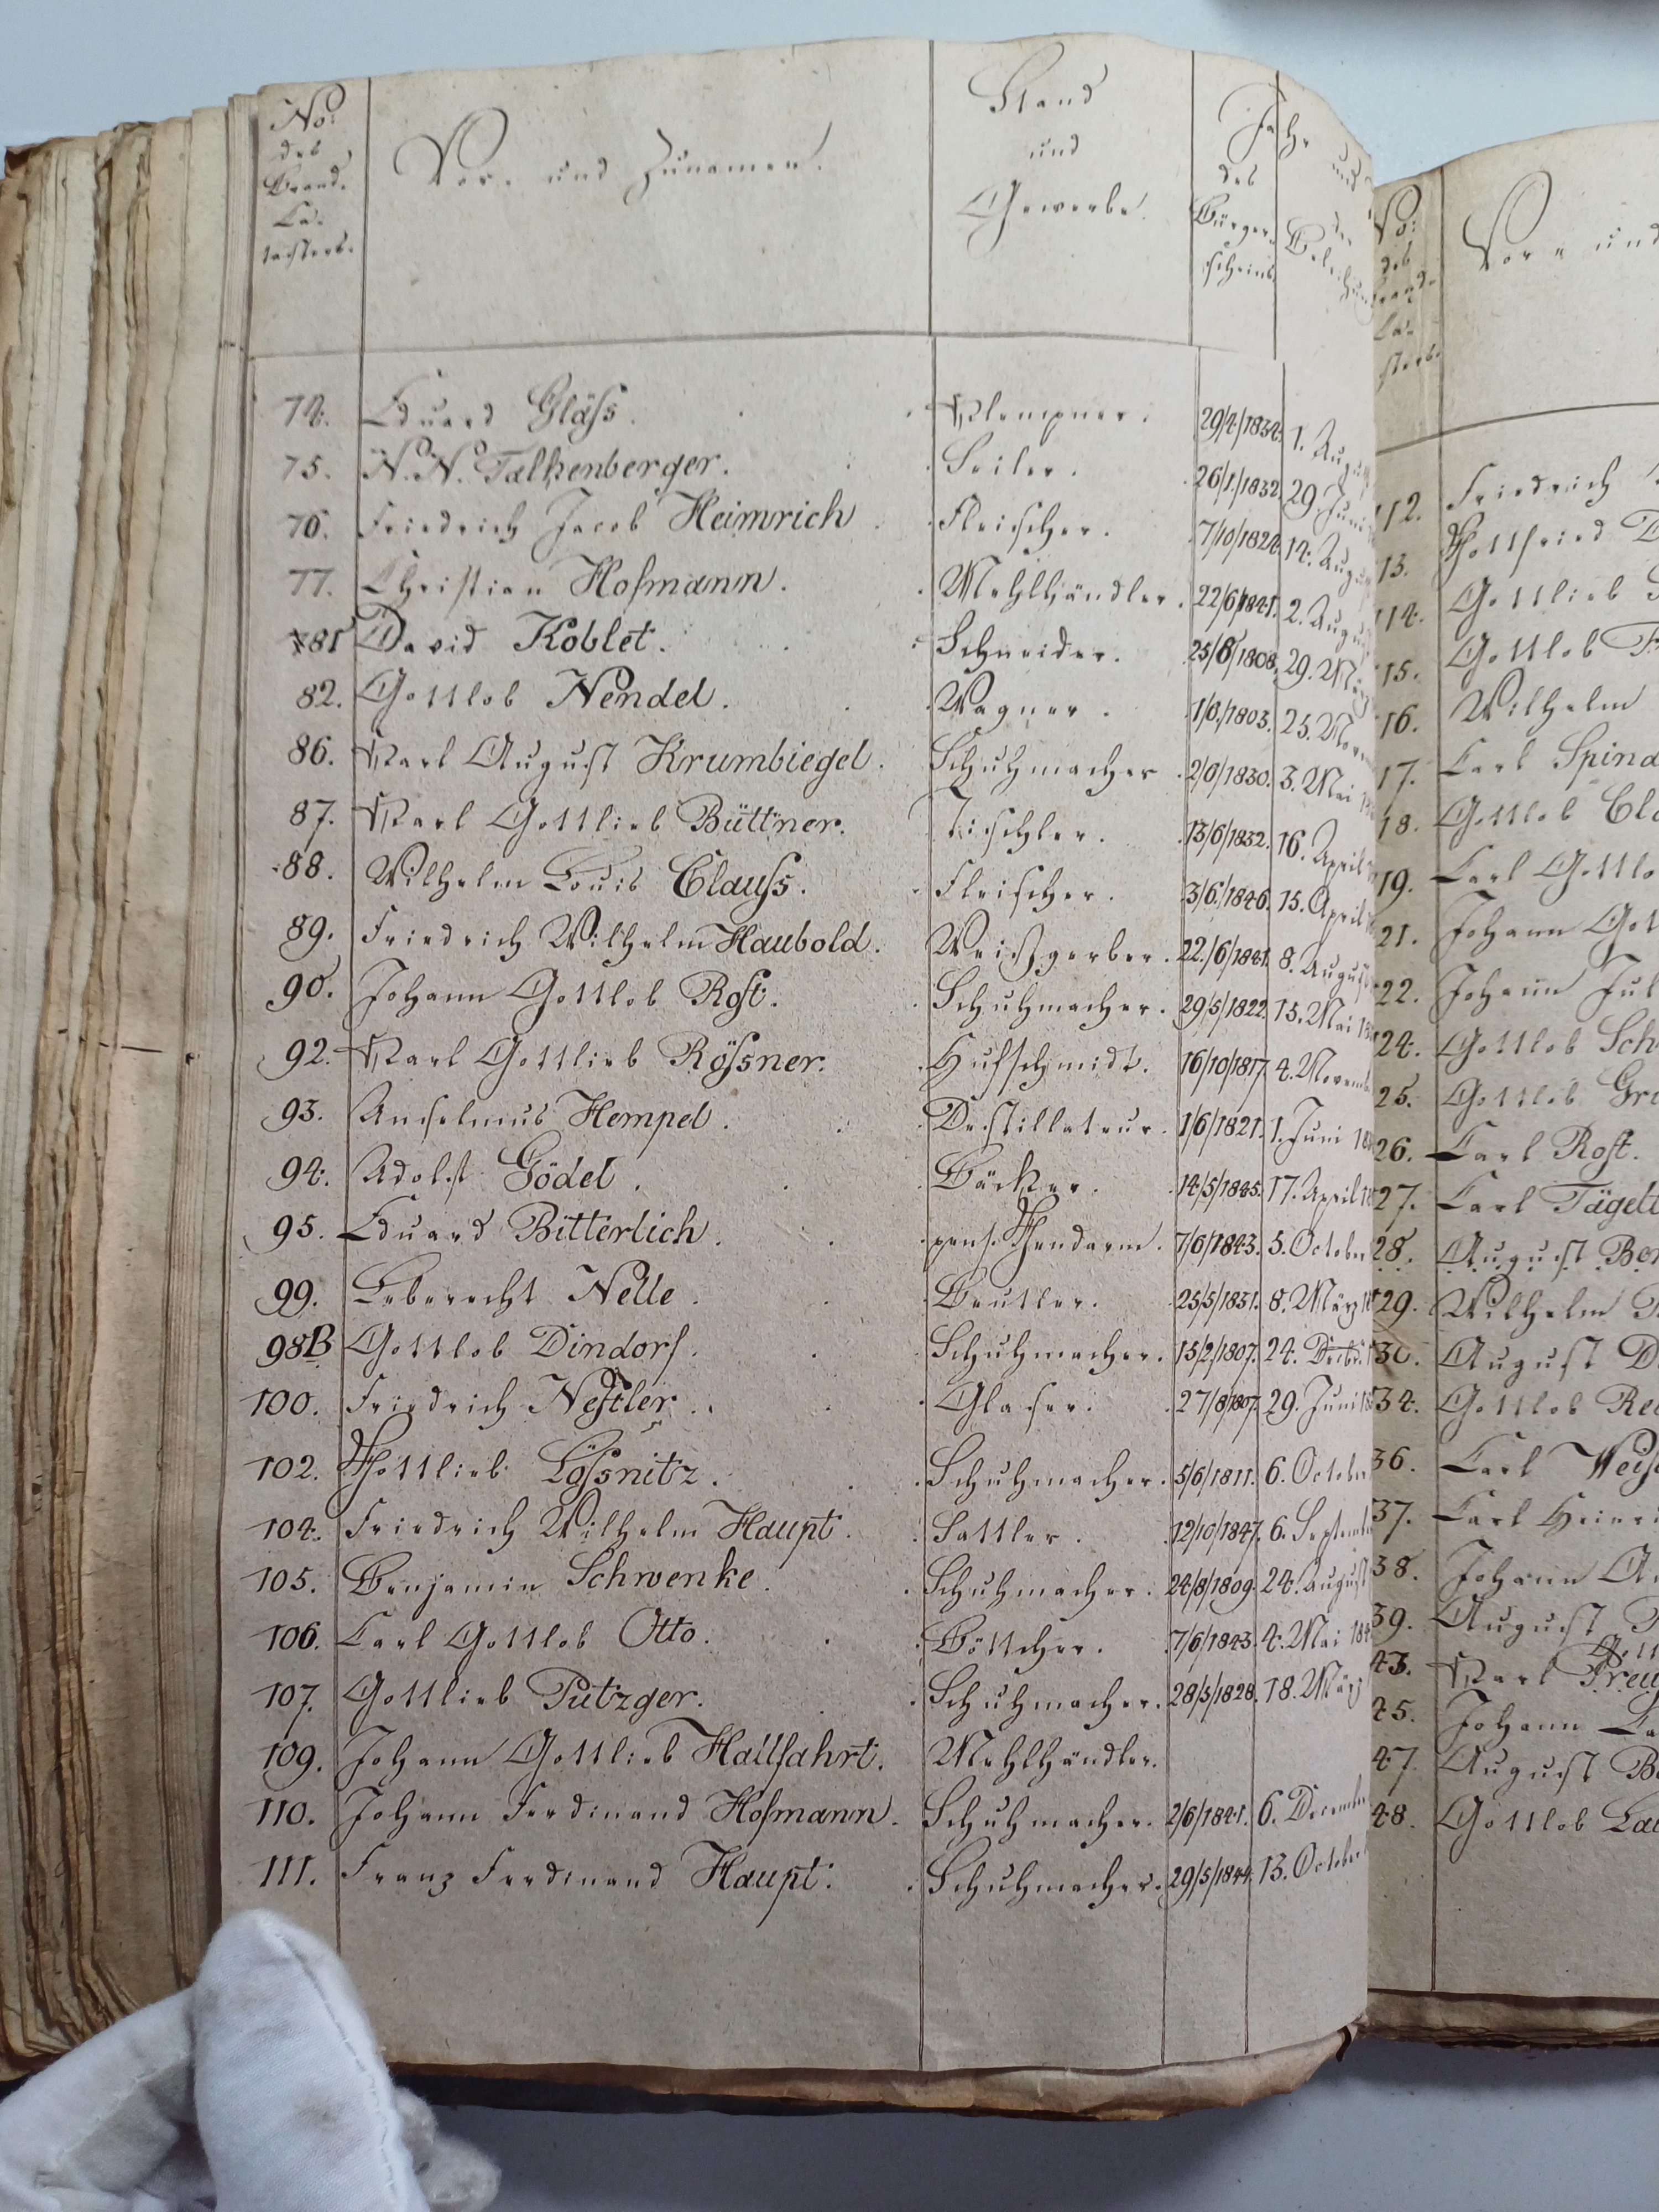 No:
des
Brand-
Ca-
tasters.
Vor- und Zunamen.
Stand
und
Gewerbe.
Jahr und
des
Bürger-
scheins
der
74. Eduard Gläss. Klempner. 29/4/1834. 1. Augu
75. N. N. Falkenberger. Seiler. 26/1./1832. 29. Juni
76. Friedrich Jacob Heimrich. Fleischer. 7/10/1824. 14. Augu
77. Christian Hofmann. Mehlhändler. 22/6/1841. 2. Augu
81 David Koblet. Schneider. 25/8/1808. 29. Mä
82. Gottlob Nendel. Wagner. 1/8./1803. 25. Nov
86. Karl August Krumbiegel. Schuhmacher. 2/6/1830. 3. Mai
87. Karl Gottlieb Büttner. Tischler. 13/6/1832. 16. April
88. Wilhelm Louis Clauss. Fleischer. 3/6./1846. 15. April
89. Friedrich Wilhelm Haubold. Weißgerber. 22./6/1841. 8. August
90. Johann Gottlob Rost. Schuhmacher. 29/5/1822. 15. Mai
92. Karl Gottlieb Rössner. Hufschmidt. 16/10/1817. 4. Novemb
93. Anselmus Hempel. Destillateur. 1/6/1821. 1. Juni
94. Adolf Gödel. Bäcker. 14/5/1845. 17. April
95. Eduard Bitterlich. pens. Gendarm. 7/6/1843. 5. October
99. Leberecht Nelle. Beutler. 25/5/1831. 8. März
98B Gottlob Dindorf. Schuhmacher. 15/2/1807. 24. Decbr.
100. Friedrich Nestler. Glaser. 27/8/1807. 29. Juni
102. Gottlieb Lössnitz. Schuhmacher. 5/6/1811. 6. October
104. Friedrich Wilhelm Haupt. Sattler. 12/10/1847. 6. Septemb
105. Benjamin Schwenke. Schuhmacher. 24/8/1809. 24. August
106. Carl Gottlob Otto. Böttcher. 7/6/1843. 4. Mai 184
107. Gottlieb Putzger. Schuhmacher. 28/5/1828. 18. März
109. Johann Gottlieb Hallfahrt. Mehlhändler.
110. Johann Ferdinand Hofmann. Schuhmacher. 2/6/1841. 6. December
111. Franz Ferdinand Haupt. Schuhmacher. 29/5/1844. 13. October
No:
des
Vor- und
112. Friedrich
13. Gottfried
114. Gottlieb
15. Gottlob
16. Wilhelm
17. Carl Spind
18. Gottlob Cla
19. Carl Gottlo
21. Johann Got
22. Johann Jul
24. Gottlob Sch
25. Gottlob Gr
26. Carl Rost.
27. Carl Tägel
28. August Be
29. Wilhelm
30. August D
34. Gottlob Re
36. Carl Weis
37. Carl Heinr
38. Johann A
39. August
43. Karl Preu
45. Johann
47. August B
48. Gottlob Lau